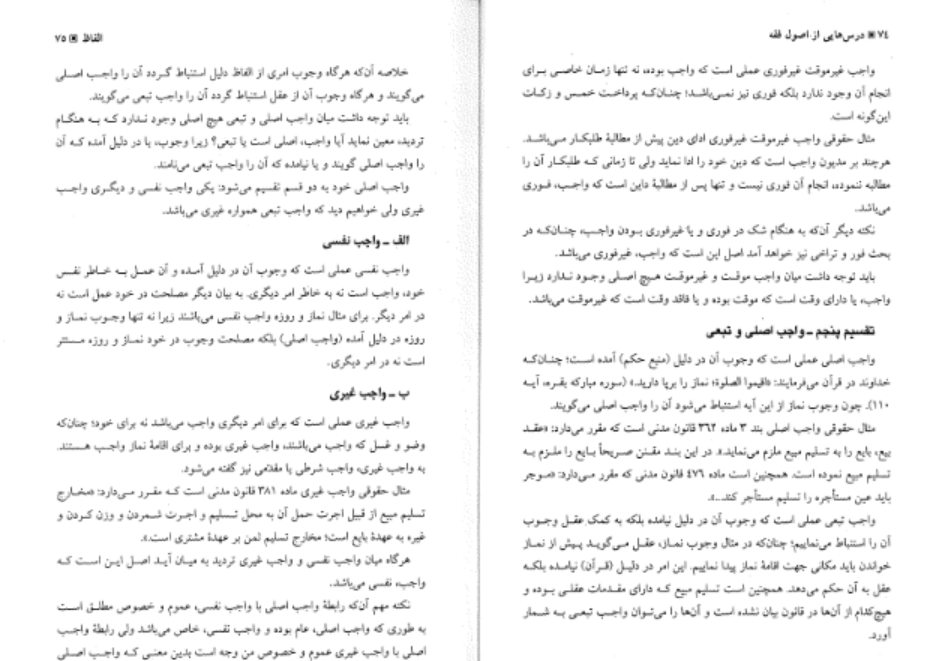 ۷۴ ▣ درس‌هایی از اصول فقه
واجب غیرموقت غیرفوری عملی است که واجب بوده، نه تنها زمان خاصی برای
انجام آن وجود ندارد بلکه فوری نیز نمی‌باشد؛ چنان‌که پرداخت خمس و زکات
این‌گونه است.
مثال حقوقی واجب غیرموقت غیرفوری ادای دین پیش از مطالبهٔ طلبکار می‌باشد.
هرچند بر مدیون واجب است که دین خود را ادا نماید ولی تا زمانی که طلبکار آن را
مطالبه ننموده، انجام آن فوری نیست و تنها پس از مطالبهٔ داین است که واجب، فوری
می‌باشد.
نکته دیگر آن‌که به هنگام شک در فوری و یا غیرفوری بودن واجب، چنان‌که در
بحث فور و تراخی نیز خواهد آمد اصل این است که واجب، غیرفوری می‌باشد.
باید توجه داشت میان واجب موقت و غیرموقت هیچ اصلی وجود ندارد زیرا
واجب، یا دارای وقت است که موقت بوده و یا فاقد وقت است که غیرموقت می‌باشد.
تقسیم پنجم ـ واجب اصلی و تبعی
واجب اصلی عملی است که وجوب آن در دلیل (منبع حکم) آمده است؛ چنان‌که
خداوند در قرآن می‌فرمایند: «اقیموا الصلوة؛ نماز را برپا دارید.» (سوره مبارکه بقره، آیه
۱۱۰). چون وجوب نماز از این آیه استنباط می‌شود آن را واجب اصلی می‌گویند.
مثال حقوقی واجب اصلی بند ۳ ماده ۳۶۲ قانون مدنی است که مقرر می‌دارد: «عقد
بیع، بایع را به تسلیم مبیع ملزم می‌نماید.». در این بند مقنن صریحاً بایع را ملزم به
تسلیم مبیع نموده است. همچنین است ماده ۴۷۶ قانون مدنی که مقرر می‌دارد: «موجر
باید عین مستأجره را تسلیم مستأجر کند...».
واجب تبعی عملی است که وجوب آن در دلیل نیامده بلکه به کمک عقل وجوب
آن را استنباط می‌نماییم؛ چنان‌که در مثال وجوب نماز، عقل می‌گوید پیش از نماز
خواندن باید مکانی جهت اقامهٔ نماز پیدا نماییم. این امر در دلیل (قرآن) نیامده بلکه
عقل به آن حکم می‌دهد. همچنین است تسلیم مبیع که دارای مقدمات عقلی بوده و
هیچ‌کدام از آن‌ها در قانون بیان نشده است و آن‌ها را می‌توان واجب تبعی به شمار
آورد.
الفاظ ▣ ۷۵
خلاصه آن‌که هرگاه وجوب امری از الفاظ دلیل استنباط گردد آن را واجب اصلی
می‌گویند و هرگاه وجوب آن از عقل استنباط گردد آن را واجب تبعی می‌گویند.
باید توجه داشت میان واجب اصلی و تبعی هیچ اصلی وجود ندارد که به هنگام
تردید، معین نماید آیا واجب، اصلی است یا تبعی؟ زیرا وجوب، یا در دلیل آمده که آن
را واجب اصلی گویند و یا نیامده که آن را واجب تبعی می‌نامند.
واجب اصلی خود به دو قسم تقسیم می‌شود: یکی واجب نفسی و دیگری واجب
غیری ولی خواهیم دید که واجب تبعی همواره غیری می‌باشد.
الف ـ واجب نفسی
واجب نفسی عملی است که وجوب آن در دلیل آمده و آن عمل به خاطر نفس
خود، واجب است نه به خاطر امر دیگری. به بیان دیگر مصلحت در خود عمل است نه
در امر دیگر. برای مثال نماز و روزه واجب نفسی می‌باشند زیرا نه تنها وجوب نماز و
روزه در دلیل آمده (واجب اصلی) بلکه مصلحت وجوب در خود نماز و روزه مستتر
است نه در امر دیگری.
ب ـ واجب غیری
واجب غیری عملی است که برای امر دیگری واجب می‌باشد نه برای خود؛ چنان‌که
وضو و غسل که واجب می‌باشند، واجب غیری بوده و برای اقامهٔ نماز واجب هستند.
به واجب غیری، واجب شرطی یا مقدمی نیز گفته می‌شود.
مثال حقوقی واجب غیری ماده ۳۸۱ قانون مدنی است که مقرر می‌دارد: «مخارج
تسلیم مبیع از قبیل اجرت حمل آن به محل تسلیم و اجرت شمردن و وزن کردن و
غیره به عهدهٔ بایع است؛ مخارج تسلیم ثمن بر عهدهٔ مشتری است.».
هرگاه میان واجب نفسی و واجب غیری تردید به میان آید اصل این است که
واجب، نفسی می‌باشد.
نکته مهم آن‌که رابطهٔ واجب اصلی با واجب نفسی، عموم و خصوص مطلق است
به طوری که واجب اصلی، عام بوده و واجب نفسی، خاص می‌باشد ولی رابطهٔ واجب
اصلی با واجب غیری عموم و خصوص من وجه است بدین معنی که واجب اصلی